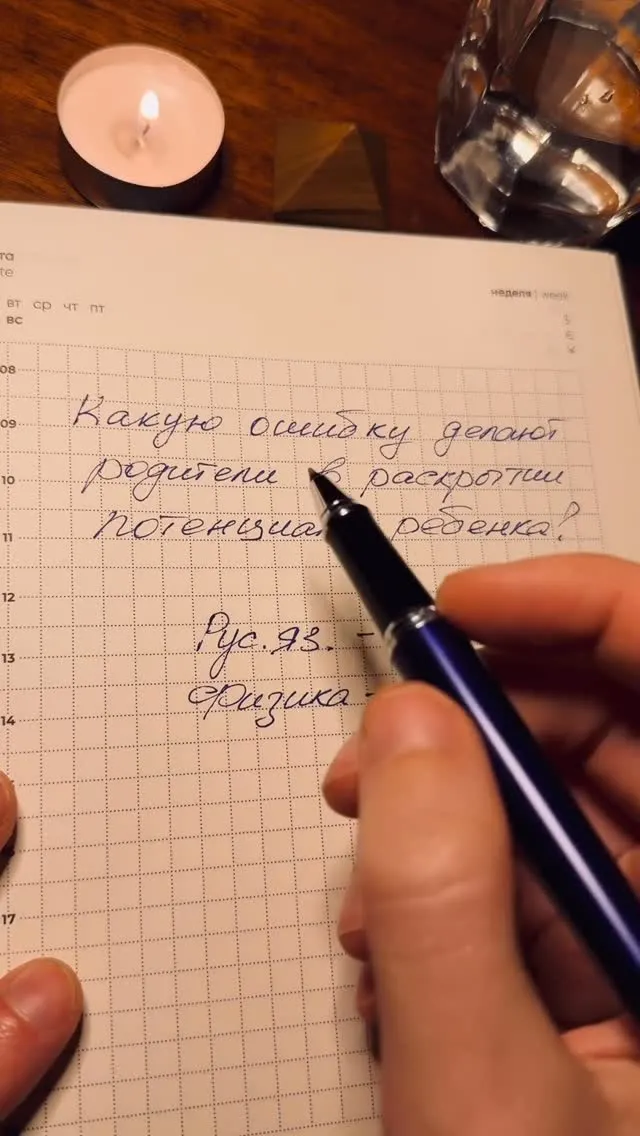 вт ср чт пт
вс
неделя | week
08
09
10
11
12
13
14
17
Какую ошибку делают
родители в раскрытии
ребенка?
Рус. яз. -
Физика -